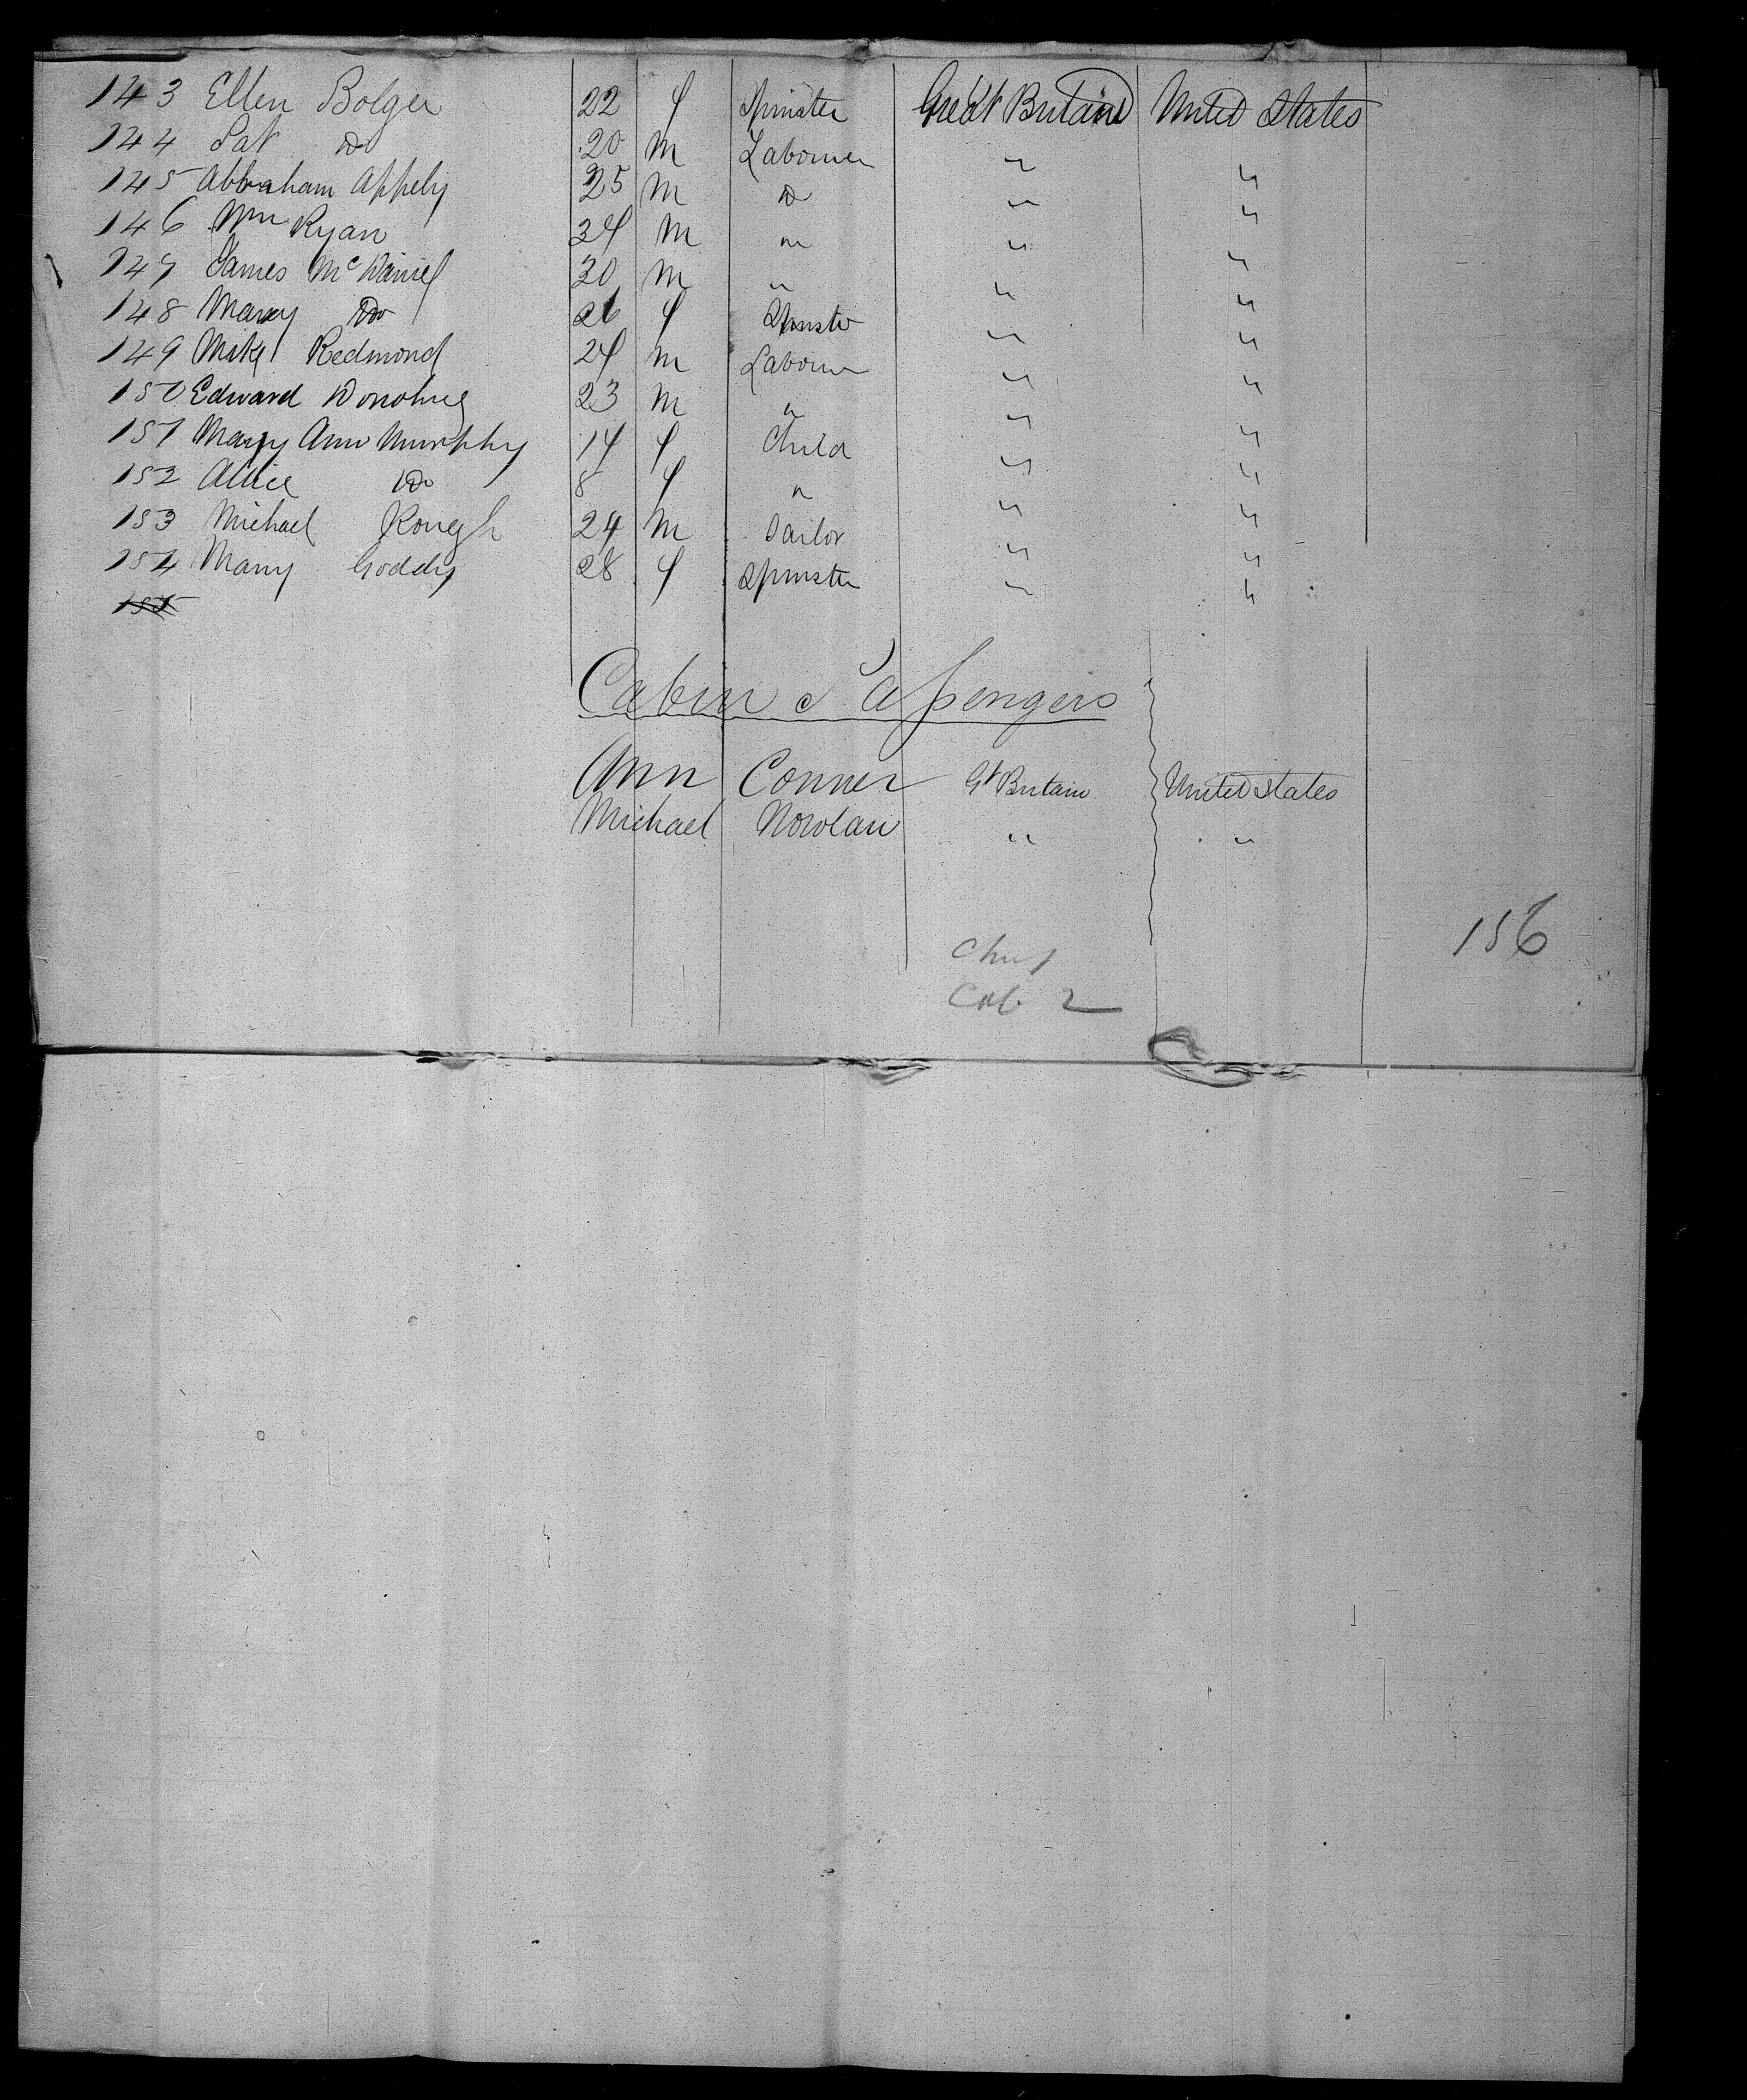 143 Ellen Bolger 22 f Spinster Great Britain United States
144 Pat Do 20 m Labourer " "
145 Abbraham Appelby 25 m Do " "
146 Wm Ryan 24 m " " "
147 James McDaniel 30 m " " "
148 Mary Do 26 f Spinster " "
149 Mike Redmond 24 m Labourer " "
150 Edward Donohue 23 m " " "
151 Mary Ann Murphy 14 f Child " "
152 Allice Do 8 f " " "
153 Michael Rough 24 m Sailor " "
154 Mary Goddy 28 f Spinster " "
155
Cabin Passengers
Ann Conner Gt Britain United States
Michael Nowlan " "
156
Cab 2